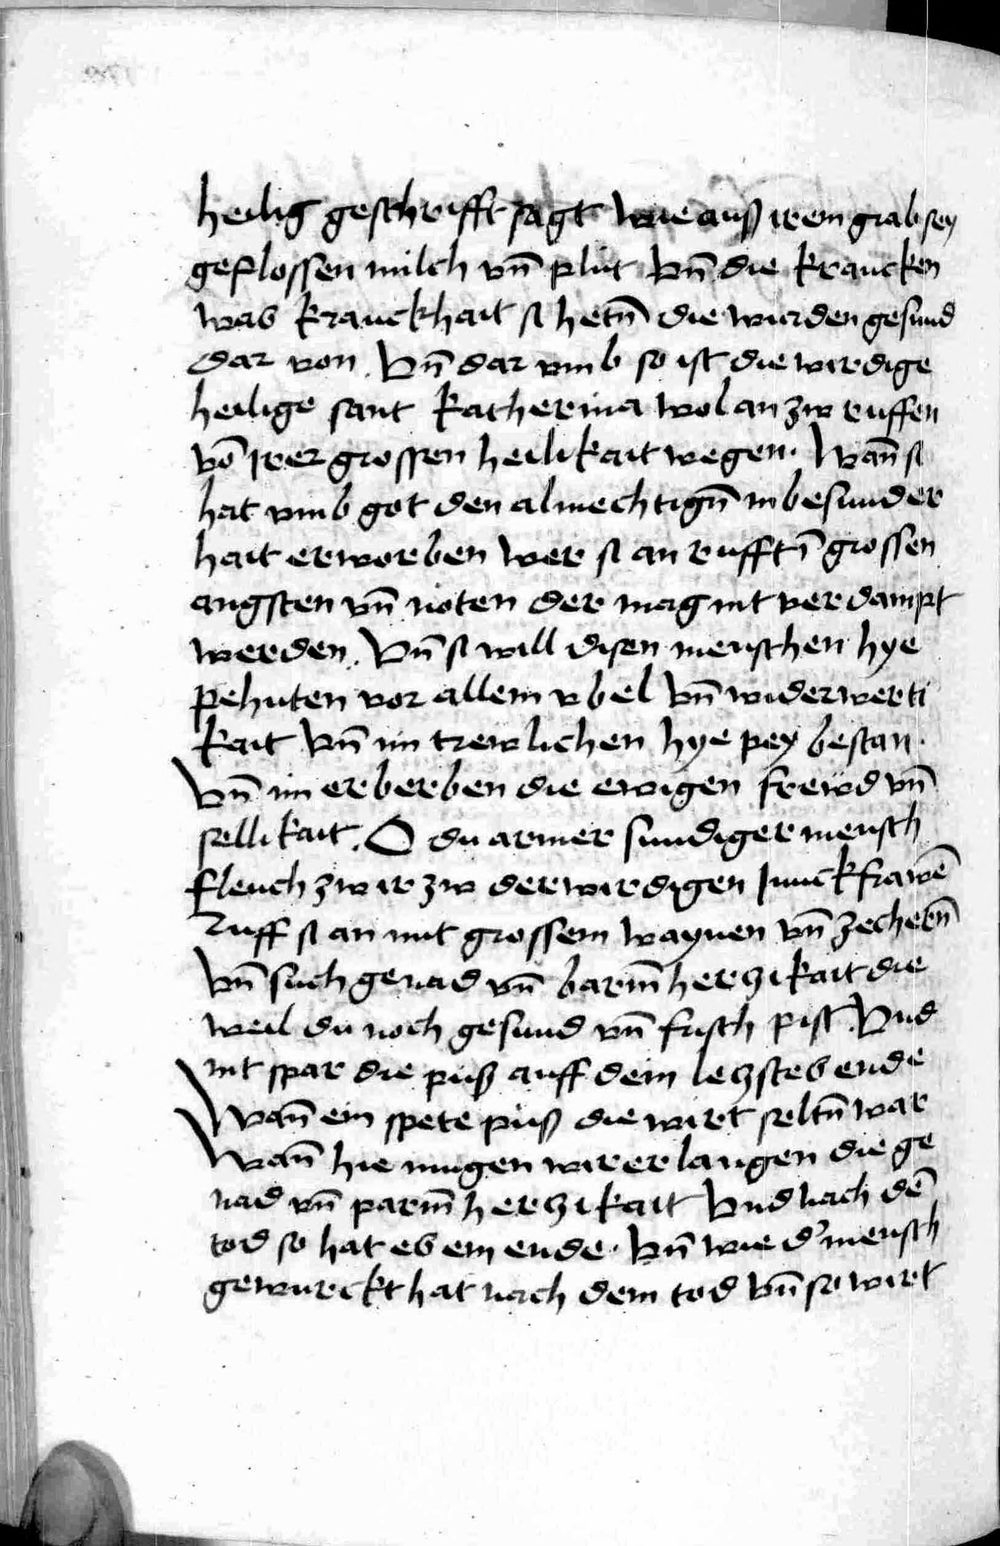 heilig geschrifft sagt wie auß irem grab sey
geflossen milch vn̄ plut Vn̄ die krancken
was kranckhait si hetn̄ die wurden gesund
dar von. Vn̄ dar vmb so ist die wirdige
heilige sant Katherina wol an zw ruffen
vō irer grossen heilikait wegen. Wan̄ si
hat vmb got den almechtign̄ in besunder
hait erworben wer si an rufft ī grossen
angsten vn̄ noten der mag nit verdampt
werden. Vn̄ si will disen menschen hye
pehuten vor allem vbel Vn̄ widerwerti
kait Vn̄ im trewlichen hye pey bestan.
Vn̄ im erberben die ewigen frewd vn̄
sellikait. O du armer sundiger mensch
fleuch zw ir zw der wirdigen Junckfrawē
Ruff si an mit grossem waynen vn̄ zechern̄
Vn̄ such genad vn̄ barm̄herczikait die
weil du noch gesund vn̄ frisch pist. Vnd
nit spar die puß auff dem leczstes ende
Wan̄ ein spete puß die wirt seltn̄ war
Wan̄ hie mugen wir erlangen die ge
nad vn̄ parm̄herczikait Vnd nach dē
tod so hat es ein ende. Vn̄ wie d' mensch
gewurckt hat nach dem tod Vn̄ so wirt